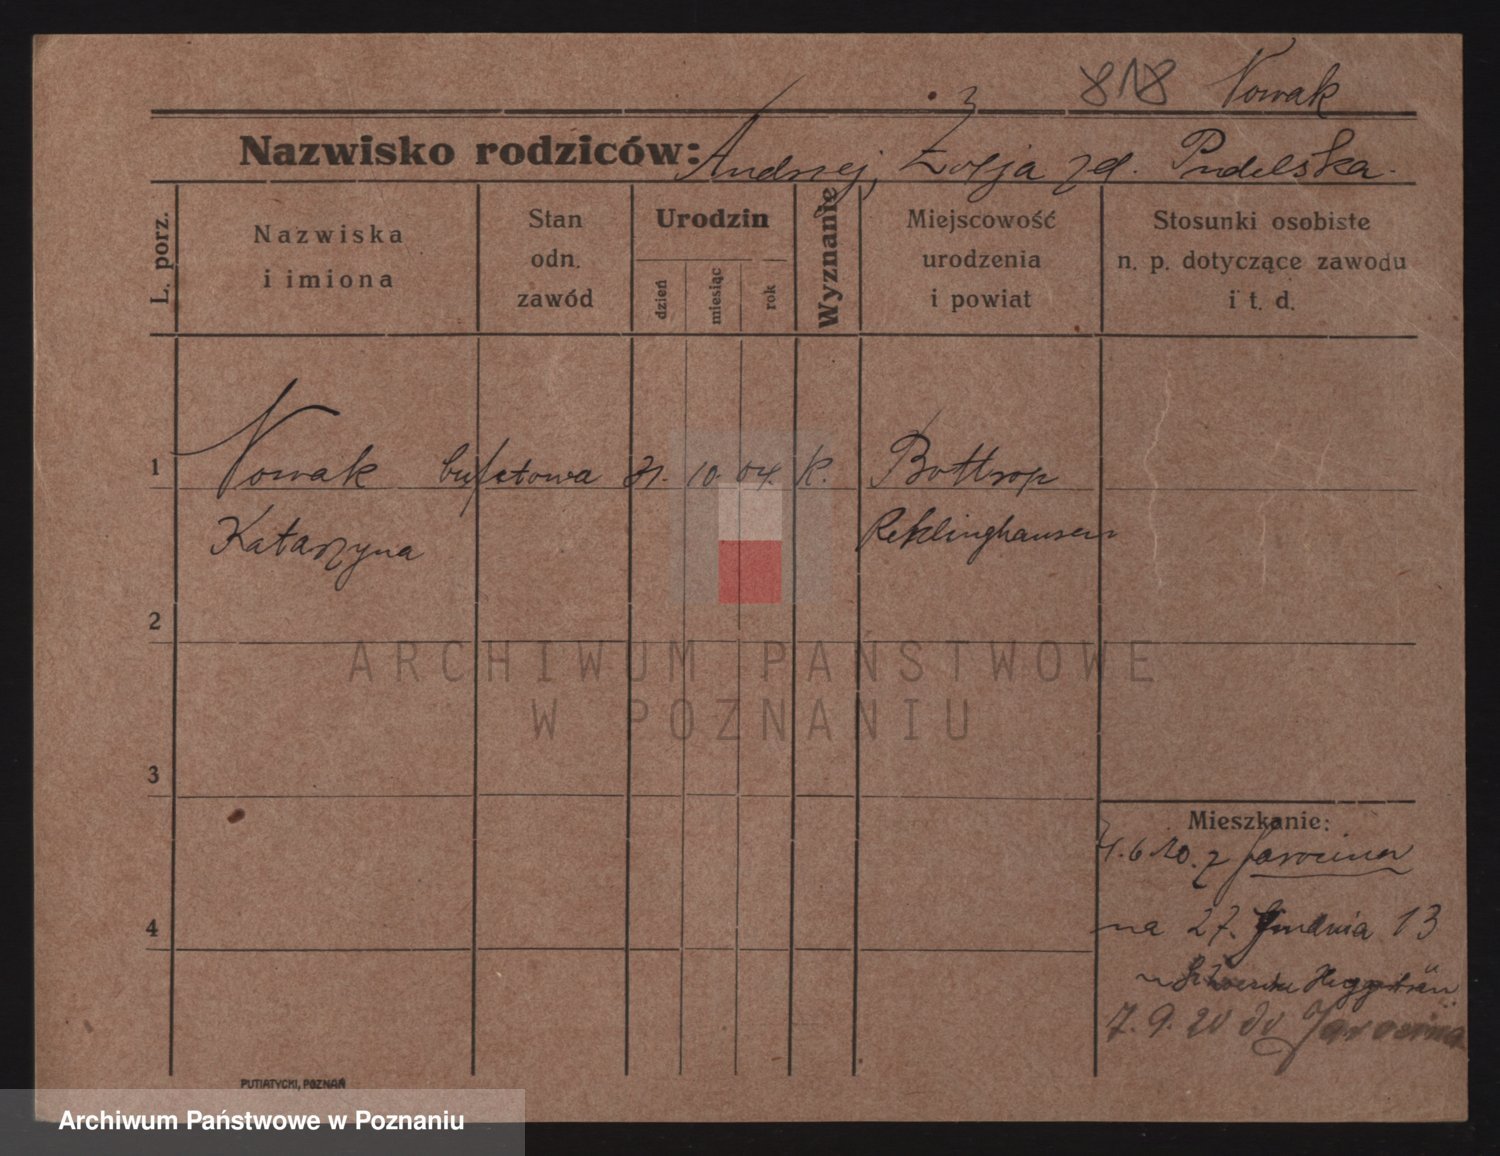 818 Nowak
Nazwisko rodziców: Andrzej, Zofja zd. Pudelska.
L. porz.
Nazwiska
i imiona
Stan
odn.
zawód
Urodzin
dzień
miesiąc
rok
Wyznanie
Miejscowość
urodzenia
i powiat
Stosunki osobiste
n. p. dotyczące zawodu
i t. d.
1
Nowak bufetowa 31. 10. 04. K. Bottrop
Katarzyna Reklinghausen
2
3
4
Mieszkanie:
4.6.20. z Jarocina
na 27. Grudnia 13
7.9.20 do Jarocina
PUTIATYCKI, POZNAŃ
ARCHIWUM PAŃSTWOWE
W POZNANIU
Archiwum Państwowe w Poznaniu